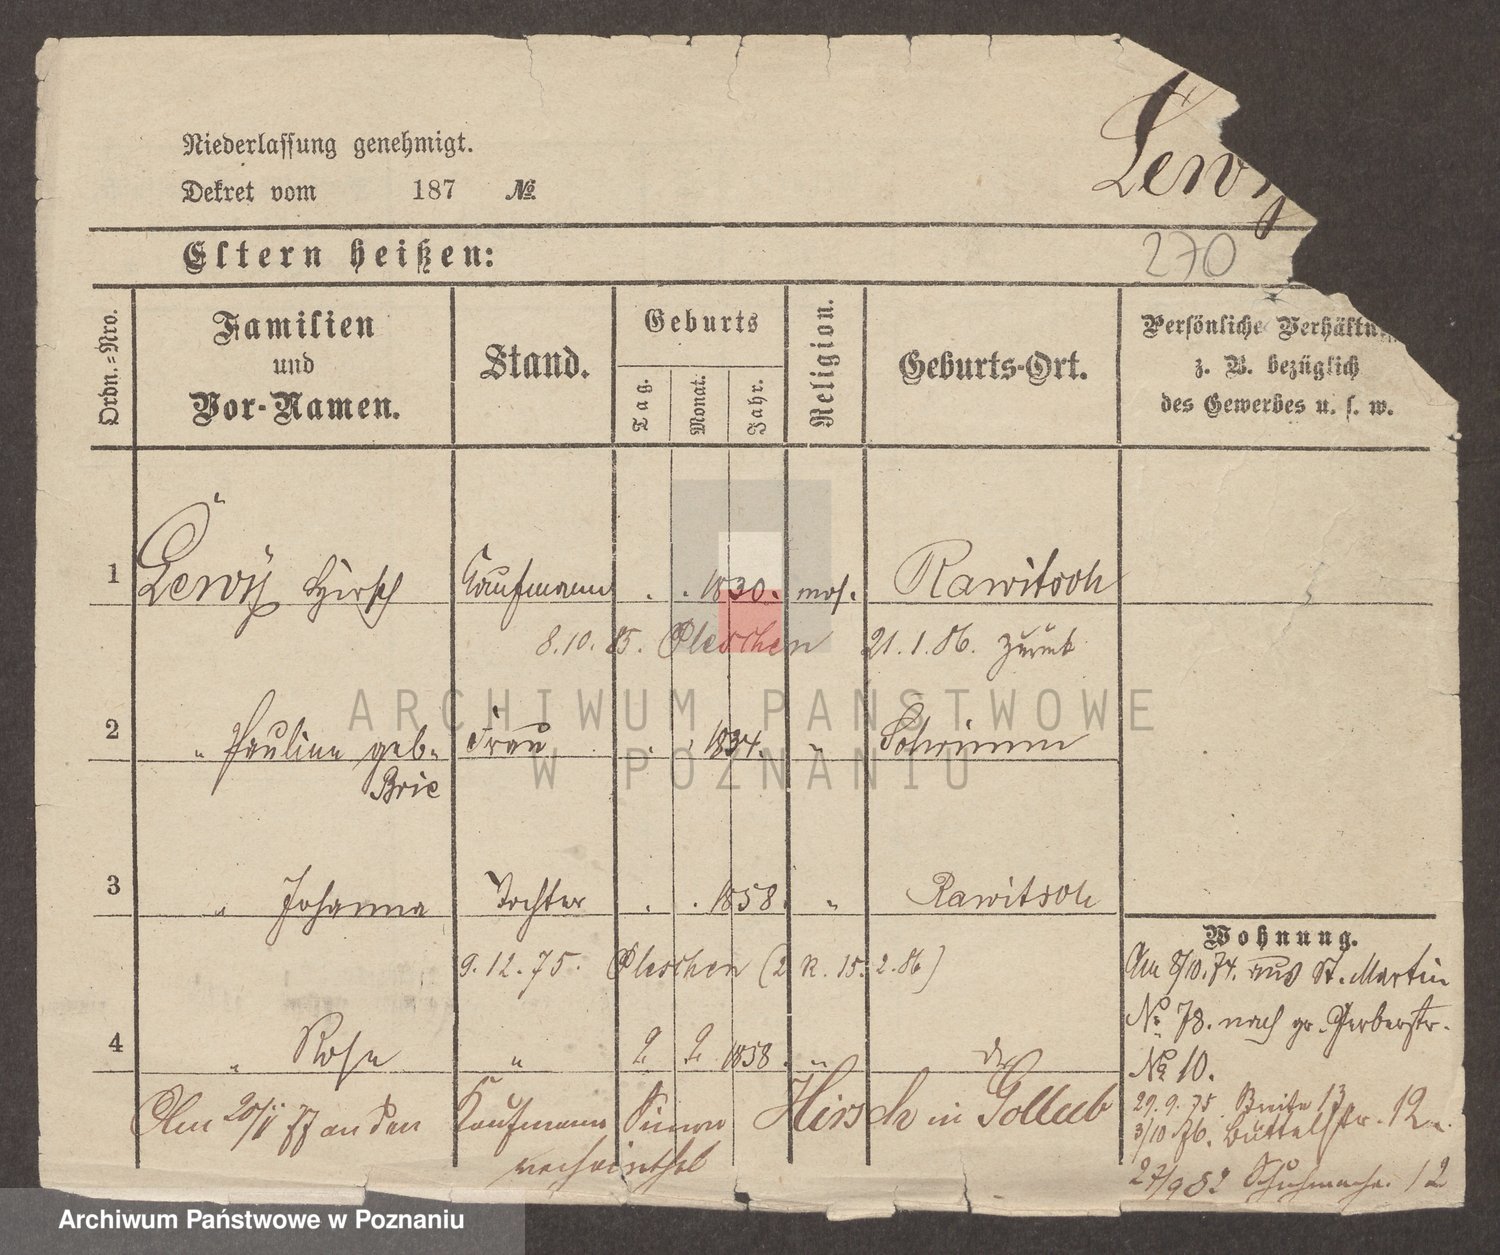 Lewy
Niederlassung genehmigt.
Dekret vom 187 №
Eltern heißen:
270
Ordn.=Nro.
Familien
und
Vor-Namen.
Stand.
Geburts
Tag.
Monat.
Jahr.
Religion.
Geburts-Ort.
Persönliche Verhältn
z. B. bezüglich
des Gewerbes u. s. w.
1 Lewÿ Hirsch Kaufmann . . 1830. mos. Rawitsch
8.10.85. Pleschen 21.1.86. zurück
2 " Pauline geb. Frau . . 1834. " Schrimm
Brie
3 " Johanna Tochter . . 1858. " Rawitsch
9.12.75. Pleschen (2 R. 15.2.86)
4 " Rosa " 2 2 1858. " do
Am 20/11 77 an den Kaufmann Simon Hirsch in Gollub
verheirathet
Wohnung.
Am 8/10.74. aus St. Martin
No. 78. nach gr. Gerberstr.
№ 10.
29.9.75. Breite 13
3/10 76. Büttelstr. 12
27/9 82 Schuhmacher. 12
ARCHIWUM PAŃSTWOWE
W POZNANIU
Archiwum Państwowe w Poznaniu